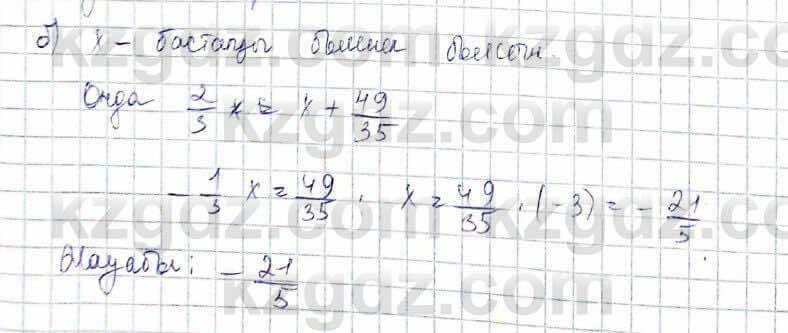 б) x - бастапқы бөлшек болсын.
Онда 2/3 x = x + 49/35
- 1/3 x = 49/35, x = 49/35 · (-3) = - 21/5.
Жауабы: - 21/5
kzgdz.com